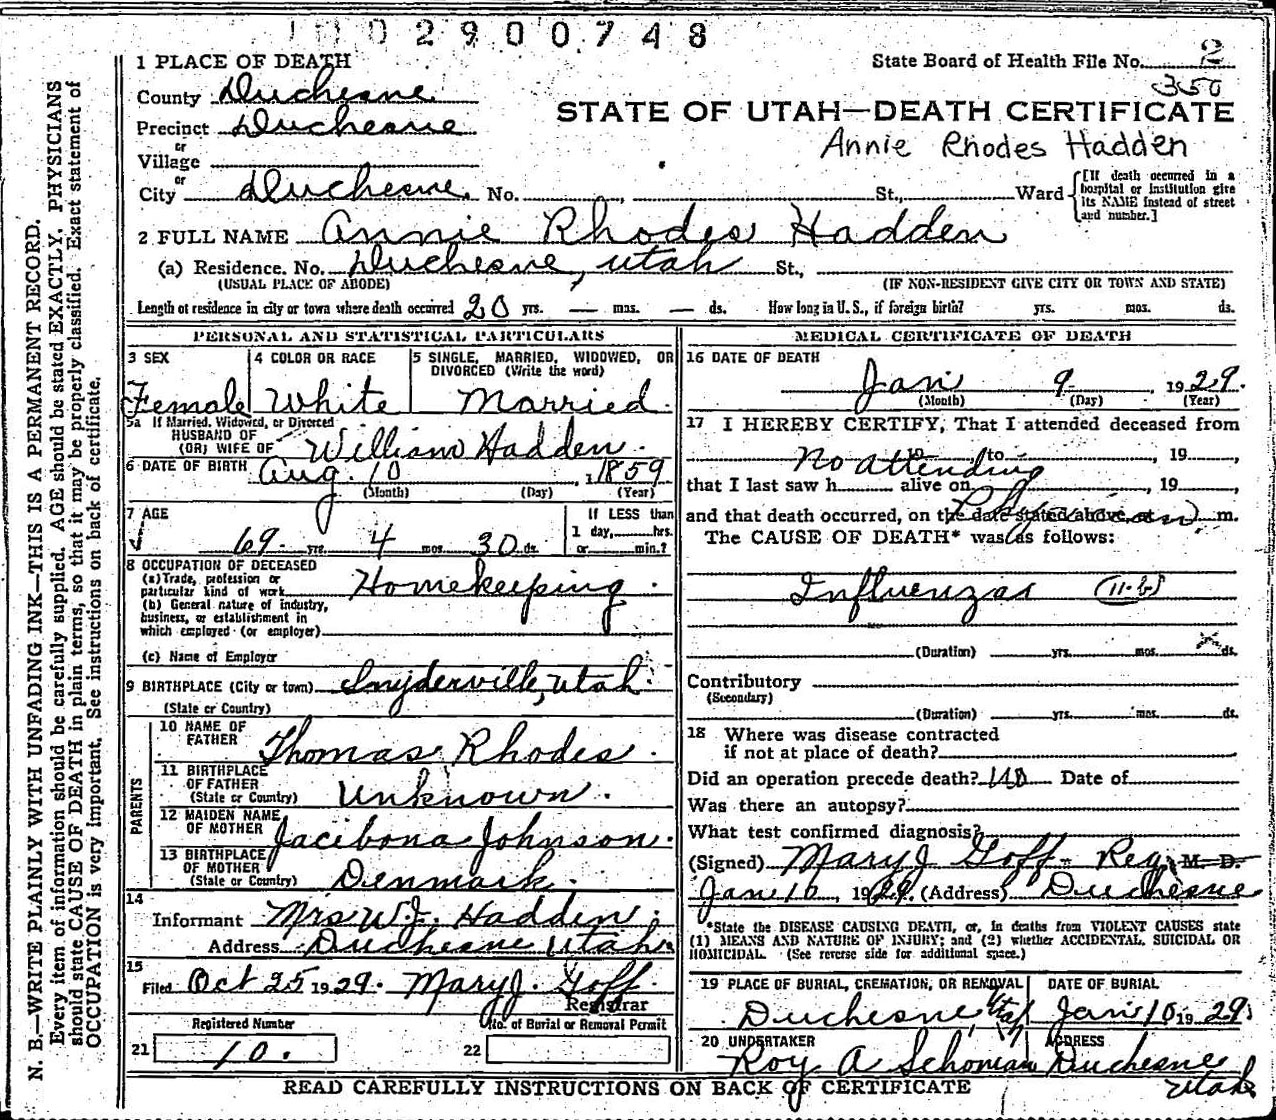 1102900748
1 PLACE OF DEATH
State Board of Health File No. 2
350
County Duchesne
STATE OF UTAH—DEATH CERTIFICATE
Precinct Duchesne
Annie Rhodes Hadden
or
Village
or
City Duchesne. No. , St., Ward
[If death occurred in a hospital or institution give its NAME instead of street and number.]
2 FULL NAME Annie Rhodes Hadden
(a) Residence. No. Duchesne, Utah St.,
(USUAL PLACE OF ABODE) (IF NON-RESIDENT GIVE CITY OR TOWN AND STATE)
Length of residence in city or town where death occurred 20 yrs. — mos. — ds. How long in U. S., if foreign birth? yrs. mos. ds.
PERSONAL AND STATISTICAL PARTICULARS
3 SEX
Female
4 COLOR OR RACE
White
5 SINGLE, MARRIED, WIDOWED, OR
DIVORCED (Write the word)
Married.
5a If Married, Widowed, or Divorced
HUSBAND OF
(OR) WIFE OF William Hadden.
6 DATE OF BIRTH Aug. 10 , 1859
(Month) (Day) (Year)
7 AGE
69 yrs. 4 mos. 30 ds.
If LESS than
1 day, hrs.
or min.?
8 OCCUPATION OF DECEASED
(a) Trade, profession or
particular kind of work Homekeeping.
(b) General nature of industry,
business, or establishment in
which employed (or employer)
(c) Name of Employer
9 BIRTHPLACE (City or town) Snyderville, Utah.
(State or Country)
PARENTS
10 NAME OF
FATHER Thomas Rhodes.
11 BIRTHPLACE
OF FATHER
(State or Country) Unknown.
12 MAIDEN NAME
OF MOTHER Jacibona Johnson.
13 BIRTHPLACE
OF MOTHER
(State or Country) Denmark.
14
Informant Mrs W. J. Hadden.
Address Duchesne Utah.
15
Filed Oct 25 1929. Mary J. Goff.
Registrar
Registered Number No. of Burial or Removal Permit
21 10. 22
MEDICAL CERTIFICATE OF DEATH
16 DATE OF DEATH
Jan 9 1929.
(Month) (Day) (Year)
17 I HEREBY CERTIFY, That I attended deceased from
No attending to , 19 ,
that I last saw h alive on , 19 ,
Physician
and that death occurred, on the date stated above, at m.
The CAUSE OF DEATH* was as follows:
Influenza (11-b)
(Duration) yrs. mos. x ds.
Contributory
(Secondary)
(Duration) yrs. mos. ds.
18 Where was disease contracted
if not at place of death?
Did an operation precede death? no Date of
Was there an autopsy?
What test confirmed diagnosis?
(Signed) Mary J Goff - Reg. M. D.
Jan 10, 1929. (Address) Duchesne
*State the DISEASE CAUSING DEATH, or, in deaths from VIOLENT CAUSES state
(1) MEANS AND NATURE OF INJURY; and (2) whether ACCIDENTAL, SUICIDAL OR
HOMICIDAL. (See reverse side for additional space.)
19 PLACE OF BURIAL, CREMATION, OR REMOVAL
Duchesne Utah
DATE OF BURIAL
Jan 10 1929.
20 UNDERTAKER
Roy A Schonian
ADDRESS
Duchesne
Utah.
READ CAREFULLY INSTRUCTIONS ON BACK OF CERTIFICATE
N. B.—WRITE PLAINLY WITH UNFADING INK—THIS IS A PERMANENT RECORD.
Every item of information should be carefully supplied. AGE should be stated EXACTLY. PHYSICIANS
should state CAUSE OF DEATH in plain terms, so that it may be properly classified. Exact statement of
OCCUPATION is very important. See instructions on back of certificate.